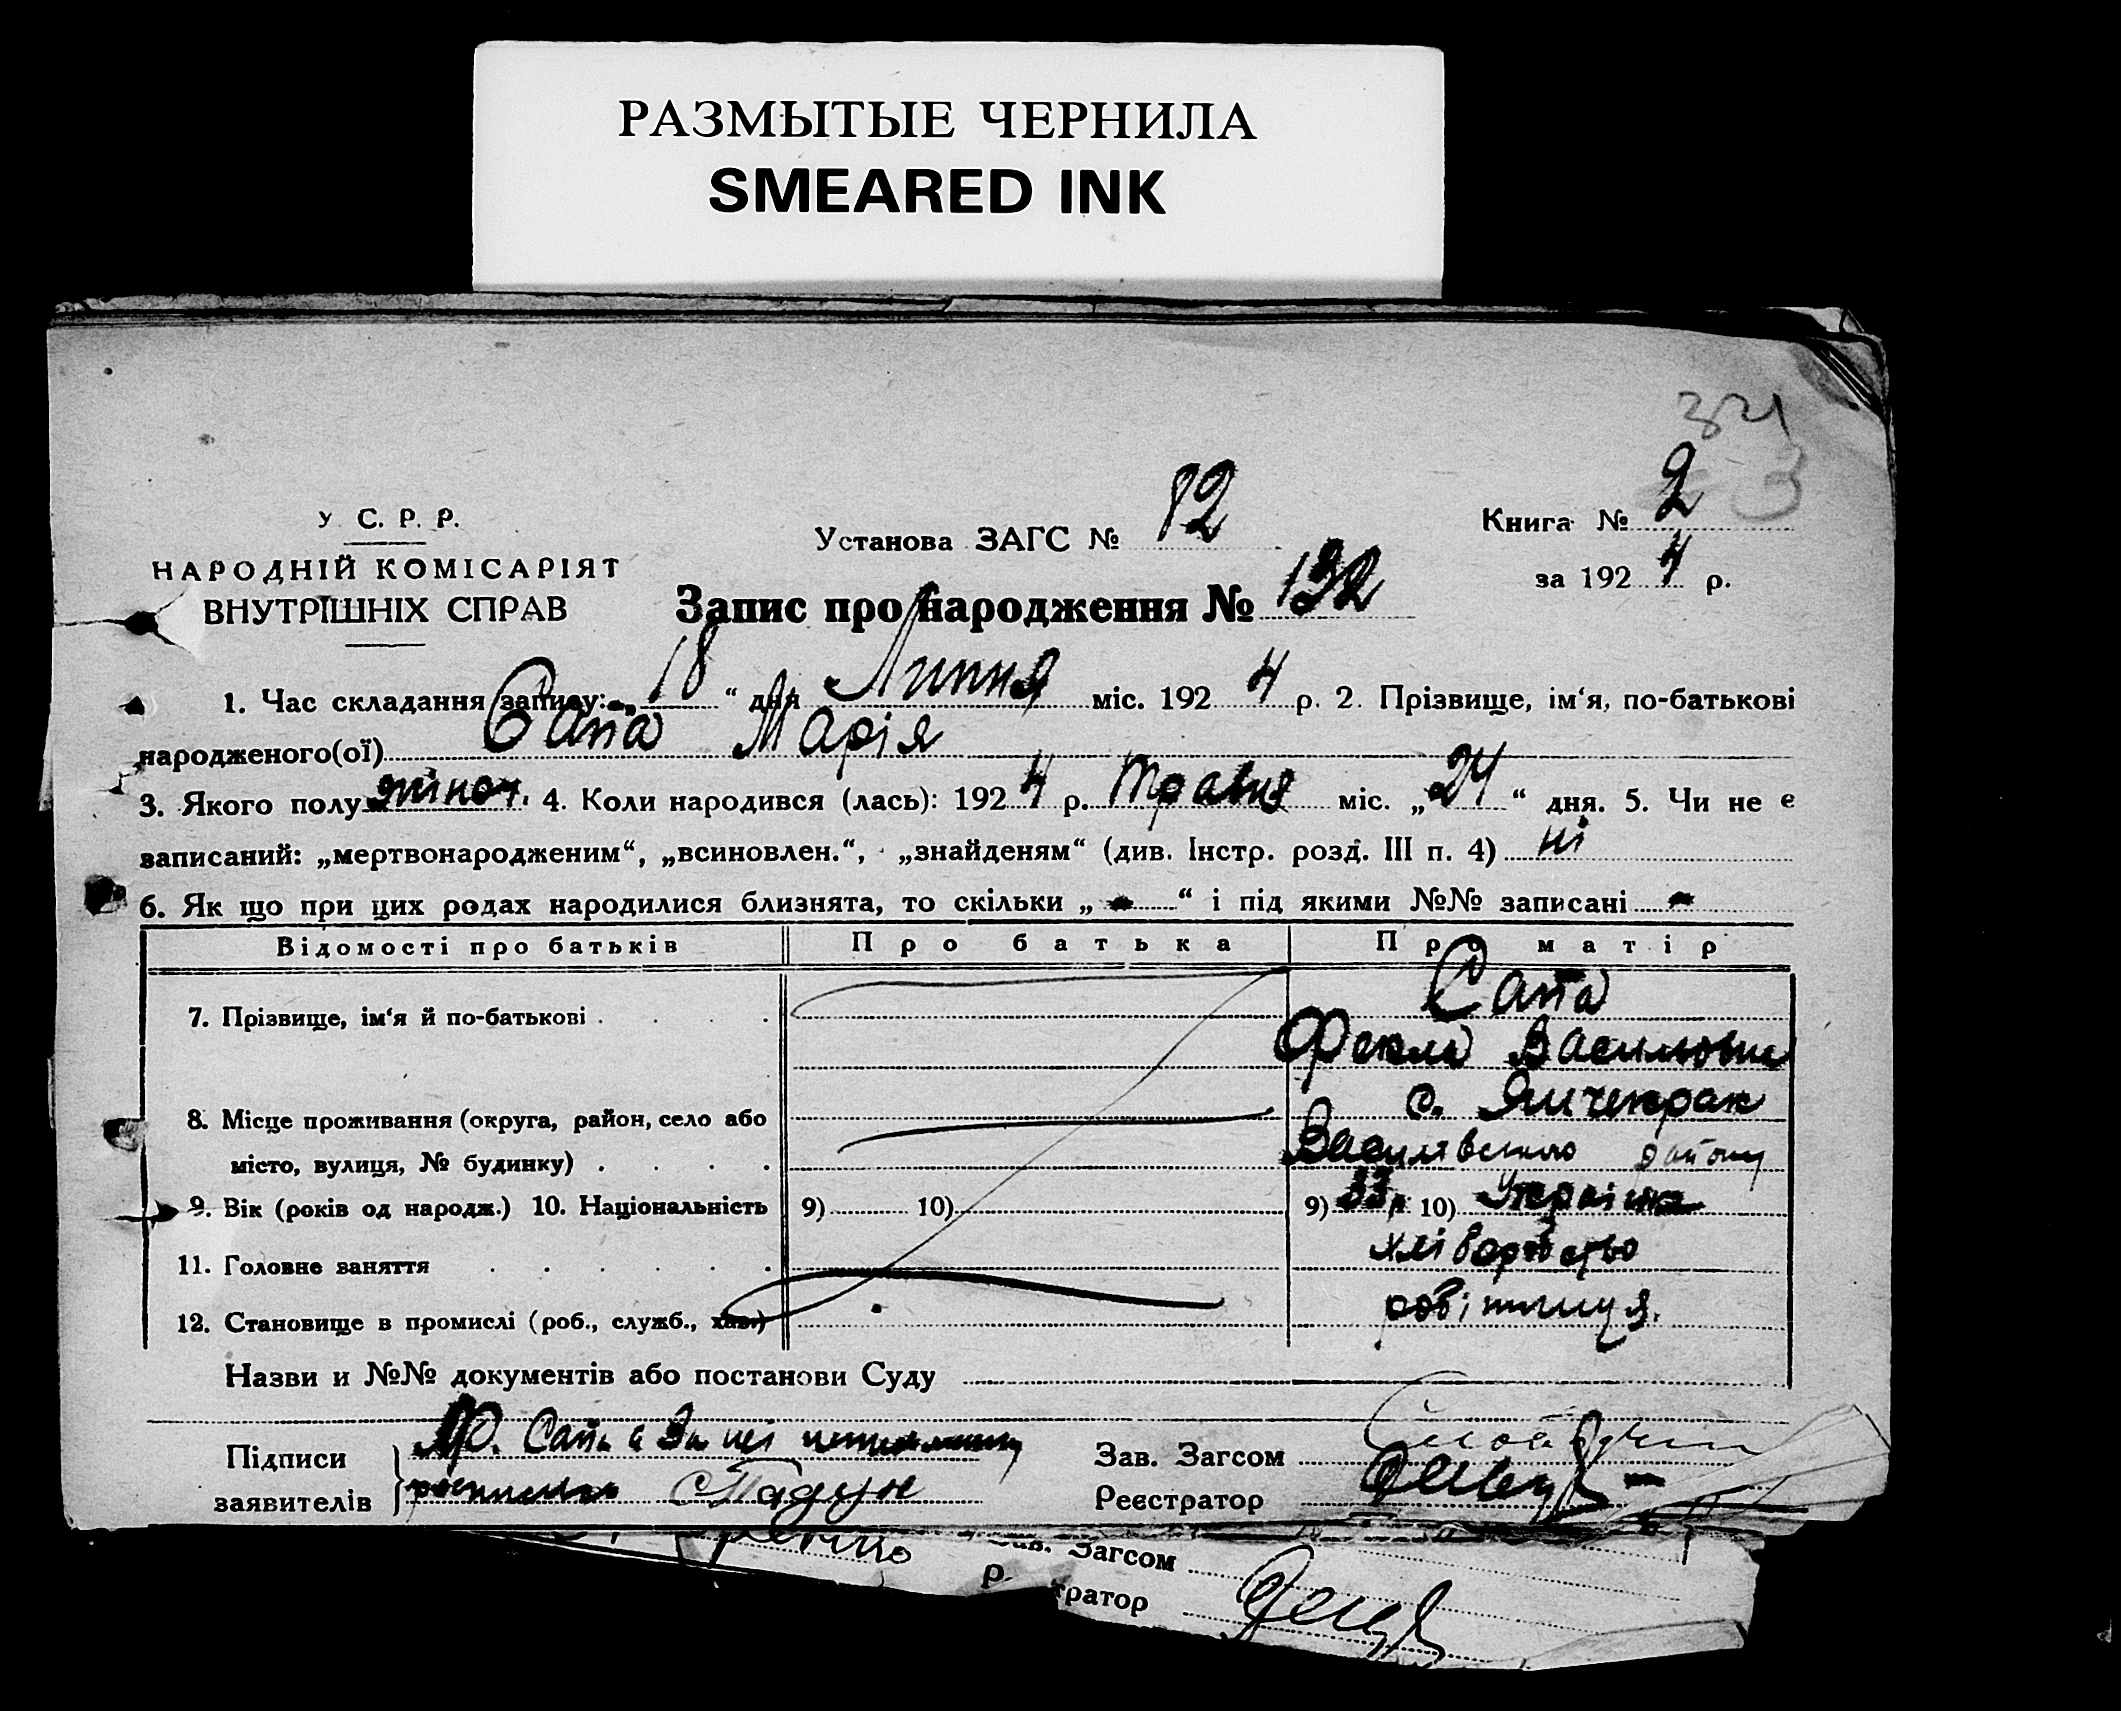 РАЗМЫТЫЕ ЧЕРНИЛА
SMEARED INK
321
3
У. С. Р. Р.
НАРОДНІЙ КОМІСАРІЯТ
ВНУТРІШНІХ СПРАВ
Установа ЗАГС № 82
Книга № 2
за 1924 р.
Запис про народження № 132
1. Час складання запису: „18“ дня Липня міс. 1924 р. 2. Прізвище, ім‘я, по-батькові
народженого(ої) Сапа Марія
3. Якого полу жіноч. 4. Коли народився (лась): 1924 р. Травня міс. „24“ дня. 5. Чи не є
записаний: „мертвонародженим“, „всиновлен.“, „знайденям“ (див. Інстр. розд. III п. 4) ні
6. Як що при цих родах народилися близнята, то скільки „-“ і під якими №№ записані -
Відомості про батьків Про батька Про матір
7. Прізвище, ім‘я й по-батькові . . . . Сапа
Фекла Василювна
8. Місце проживання (округа, район, село або с. Янчекрак
місто, вулиця, № будинку) . . . . Василівського району
9. Вік (років од народж.) 10. Національність 9) 10) 9) 33р 10) Українка
11. Головне заняття . . . . . . хліборобство
12. Становище в промислі (роб., служб., хаз.) робітниця.
Назви и №№ документів або постанови Суду
Підписи Ф. Сапа а за неї
заявителів Падун
Зав. Загсом
Реєстратор
Зав. Загсом
р.
тратор